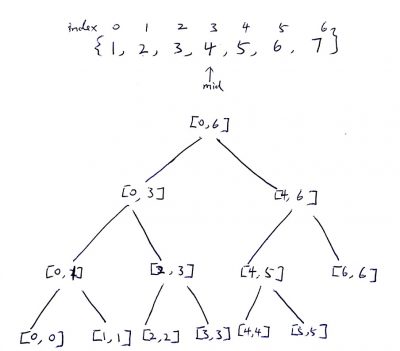 index 0 1 2 3 4 5 6
{1, 2, 3, 4, 5, 6, 7}
mid
[0,6]
[0,3] [4,6]
[0,1] [2,3] [4,5] [6,6]
[0,0] [1,1] [2,2] [3,3] [4,4] [5,5]